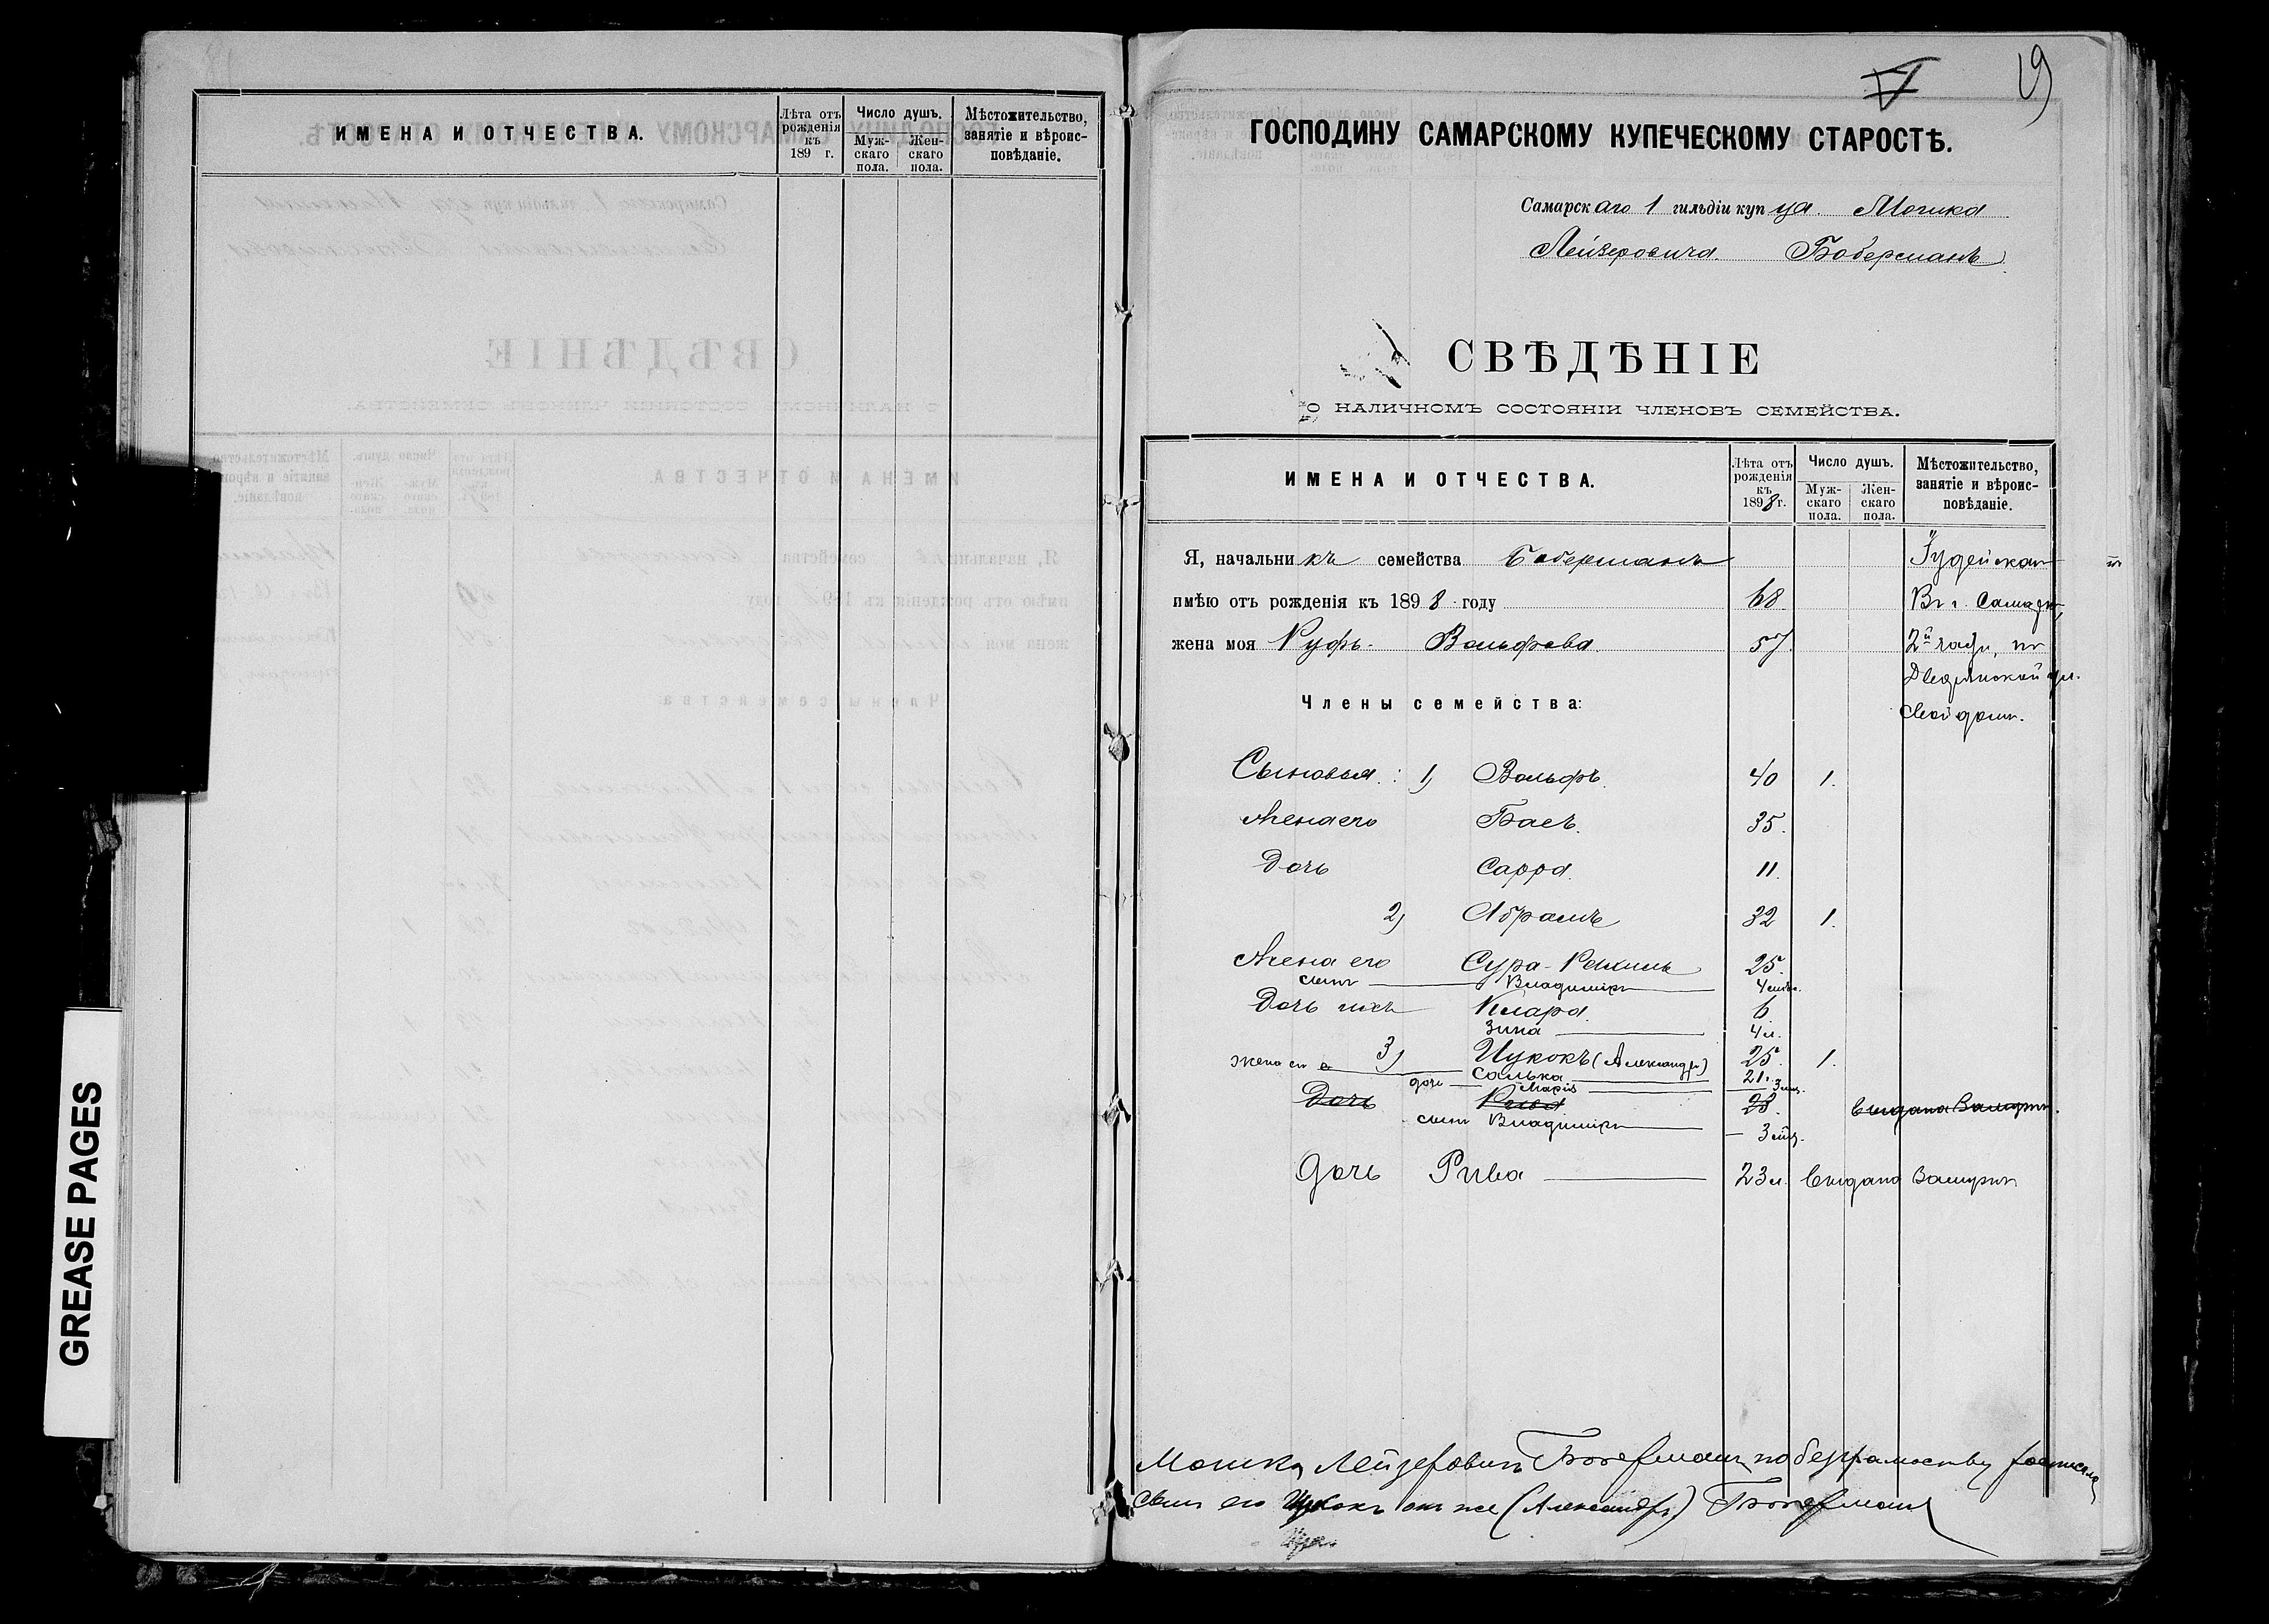 ИМЕНА И ОТЧЕСТВА.
Лѣта отъ рожденія къ 189 г.
Число душъ.
Мужскаго пола.
Женскаго пола.
Мѣстожительство, занятіе и вѣроисповѣданіе.
GREASE PAGES
19
ГОСПОДИНУ САМАРСКОМУ КУПЕЧЕСКОМУ СТАРОСТѢ.
Самарскаго 1 гильдіи купца Мошка
Лейзеровича Боберманъ
СВѢДѢНІЕ
О НАЛИЧНОМЪ СОСТОЯНІИ ЧЛЕНОВЪ СЕМЕЙСТВА.
ИМЕНА И ОТЧЕСТВА.
Лѣта отъ рожденія къ 1898 г.
Число душъ.
Мужскаго пола.
Женскаго пола.
Мѣстожительство, занятіе и вѣроисповѣданіе.
Я, начальникъ семейства Боберманъ Іудейскаго
имѣю отъ рожденія къ 1898 году 68 Въ г. Самарѣ,
жена моя Руфь Вольфова 57 2й части, по
Дворянской ул.
Члены семейства: свой домъ.
Сыновья: 1) Вольфъ 40 1.
Жена его Басъ 35.
Дочь Сарра 11.
2) Абрамъ 32 1.
Жена его Сура-Рохиль 25.
сынъ Владиміръ
Дочь ихъ Клара 6
Зина 4 л.
3) Цукокъ (Александръ) 25 1.
жена его Салька 21.
дочь Марія 3 мц.
Дочь 23. выдана Замужъ.
сынъ Владиміръ
дочь Рива 23 л. выдана Замужъ
Мошка Лейзеровичъ Боберманъ по безграмотству росписался
сынъ его Цукокъ онъ же (Александръ) Боберманъ